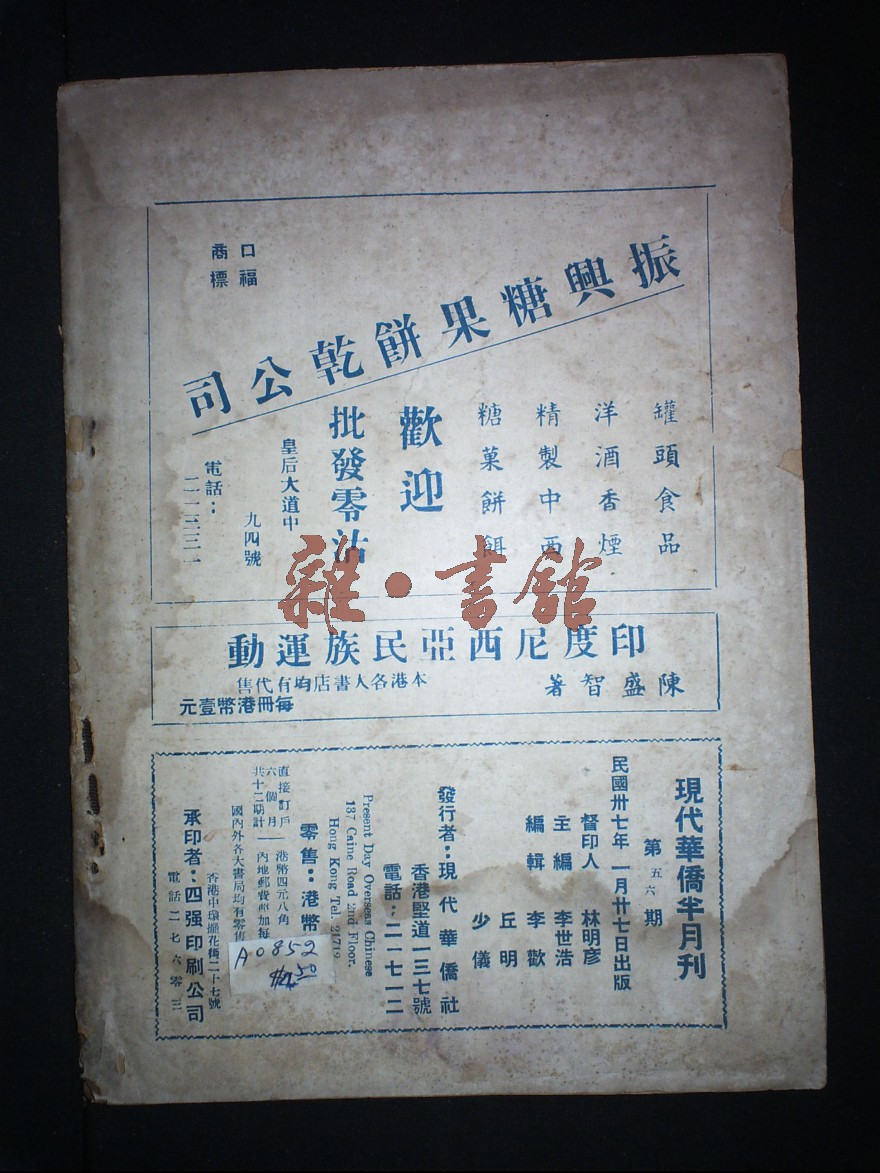 口福
商標
振興糖果餅乾公司
罐頭食品
洋酒香煙
精製中西
糖菓餅餌
歡迎
批發零沽
皇后大道中
九四號
電話：
雜·書館
印度尼西亞民族運動
陳盛智著
本港各大書店均有代售
每冊港幣壹元
現代華僑半月刊
第五六期
民國卅七年一月廿七日出版
督印人 林明彥
主編 李世浩
編輯 李歡
丘明
少儀
發行者：現代華僑社
香港堅道一三七號
電話：二一七一二
Present Day Overseas Chinese
137 Caine Road 2nd Floor.
Hong Kong Tel. 21712
零售：港幣
直接訂戶
六個月
共十二期計
港幣四元八角
內地郵費
國內外各大書局均有零售
承印者：四强印刷公司
香港中環擺花街二十七號
電話二七六零三
A0852